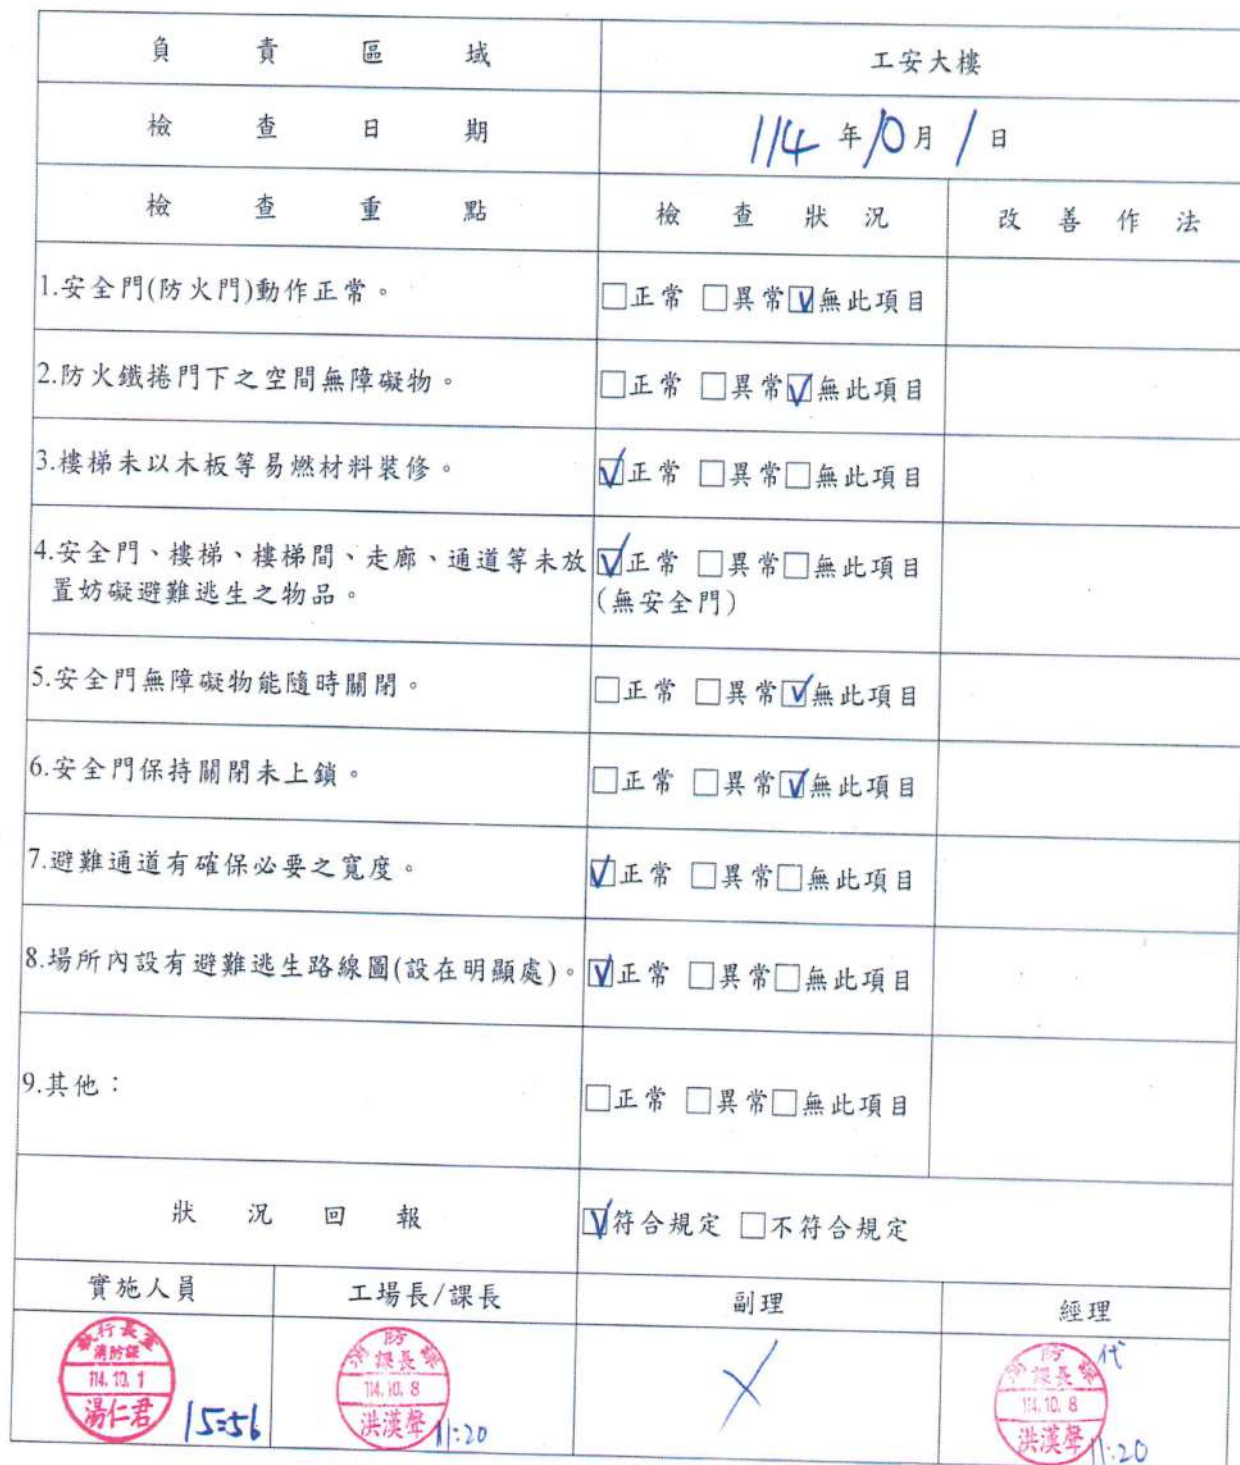 負責區域 工安大樓
檢查日期 114年10月1日
檢查重點 檢查狀況 改善作法
1.安全門(防火門)動作正常。 □正常 □異常☑無此項目
2.防火鐵捲門下之空間無障礙物。 □正常 □異常☑無此項目
3.樓梯未以木板等易燃材料裝修。 ☑正常 □異常□無此項目
4.安全門、樓梯、樓梯間、走廊、通道等未放 ☑正常 □異常□無此項目
置妨礙避難逃生之物品。 (無安全門)
5.安全門無障礙物能隨時關閉。 □正常 □異常☑無此項目
6.安全門保持關閉未上鎖。 □正常 □異常☑無此項目
7.避難通道有確保必要之寬度。 ☑正常 □異常□無此項目
8.場所內設有避難逃生路線圖(設在明顯處)。 ☑正常 □異常□無此項目
9.其他： □正常 □異常□無此項目
狀況回報 ☑符合規定 □不符合規定
實施人員 工場長/課長 副理 經理
執行長室
消防課
114.10.1
湯仁君
15:56
消防課
課長
114.10.8
洪漢聲
11:20
代
消防課
課長
114.10.8
洪漢聲
11:20